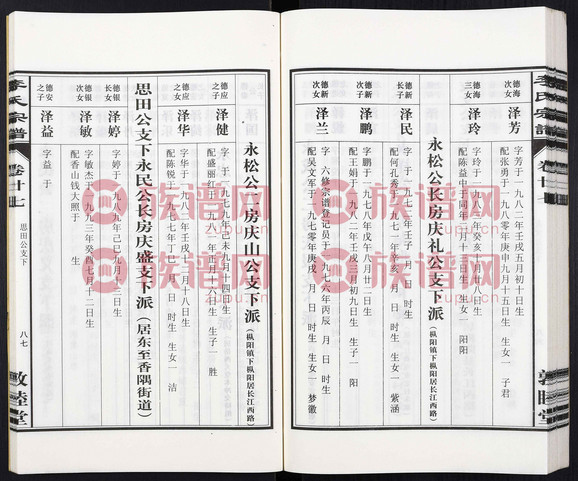 李氏宗谱
卷廿七
敦睦堂
德海次女 泽芳
字芳于一九八二年壬戌
配张勇于一九八〇年庚申九月十五日生 生女一 子君
德海三女 泽玲
字玲于一九八三年癸亥
配陈益中于同年 月十二日生 生女一 阳阳
永松公长房庆礼公支下派(枞阳镇下枞阳居长江西路)
德新长子 泽民
字民于一九七二年壬子 月 日生
配何孔秀于一九七一年辛亥 月 日 时生 生女一 紫涵
德新次子 泽鹏
字鹏于一九七八年戊午八月廿二日生
配王娟于一九八二年壬戌三月初九日生 生子一 阳
德新次女 泽兰
字 六修宗谱登记员于一九七六年丙辰 月 日 时生
配吴文军于一九七〇年庚戌 月 日 时生 生女一 梦徽
李氏宗谱
卷廿七
思田公支下
八七
敦睦堂
永松公二房庆山公支下派(枞阳镇下枞阳居长江西路)
德应之子 泽健
字健于一九七九年己未九月十四日生
配盛丽红于一九八一年正月十六日生 生子一 胜
德应之女 泽华
字华于一九八二年壬戌
配陈锐于一九七七年丁巳 月 日 时生 生女一 洁
思田公支下永民公长房庆盛支下派(居东至香隅街道)
德银长女 泽婷
字婷于一九八九年己巳九月十二日生
德银次女 泽敏
字敏杰于一九九三年癸酉七月十二日生
配香山钱大照于 生
德安之子 泽益
字益于
族谱网
zupu.cn